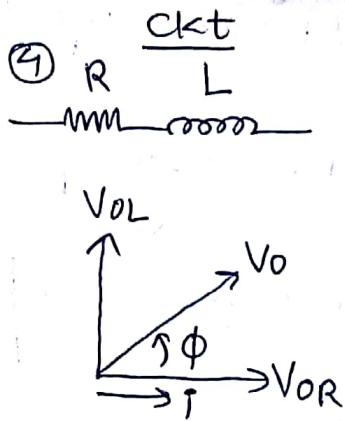 Ckt
④ R L
VOL
VO
ϕ
VOR
i